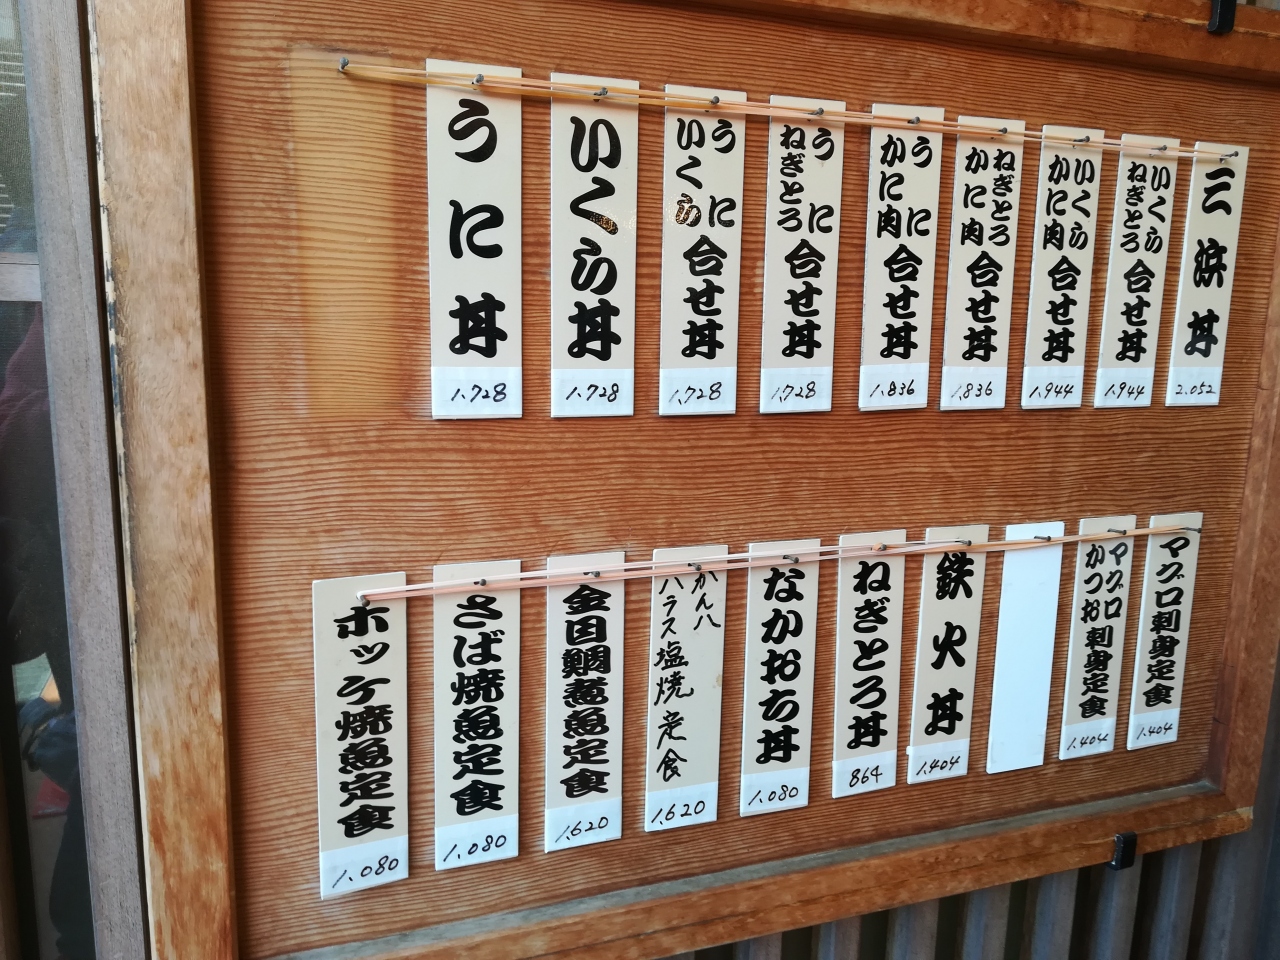 三浜丼
2.052
いくら
ねぎとろ
合せ丼
1.944
いくら
かに肉
合せ丼
1.944
ねぎとろ
かに肉
合せ丼
1.836
うに
かに肉
合せ丼
1.836
うに
ねぎとろ
合せ丼
1.728
うに
いくら
合せ丼
1.728
いくら丼
1.728
うに丼
1.728
マグロ刺身定食
1.404
マグロ
かつお
刺身定食
1.404
鉄火丼
1.404
ねぎとろ丼
864
なかおち丼
1.080
かん八
ハラス塩焼定食
1.620
金目鯛煮魚定食
1.620
さば焼魚定食
1.080
ホッケ焼魚定食
1.080